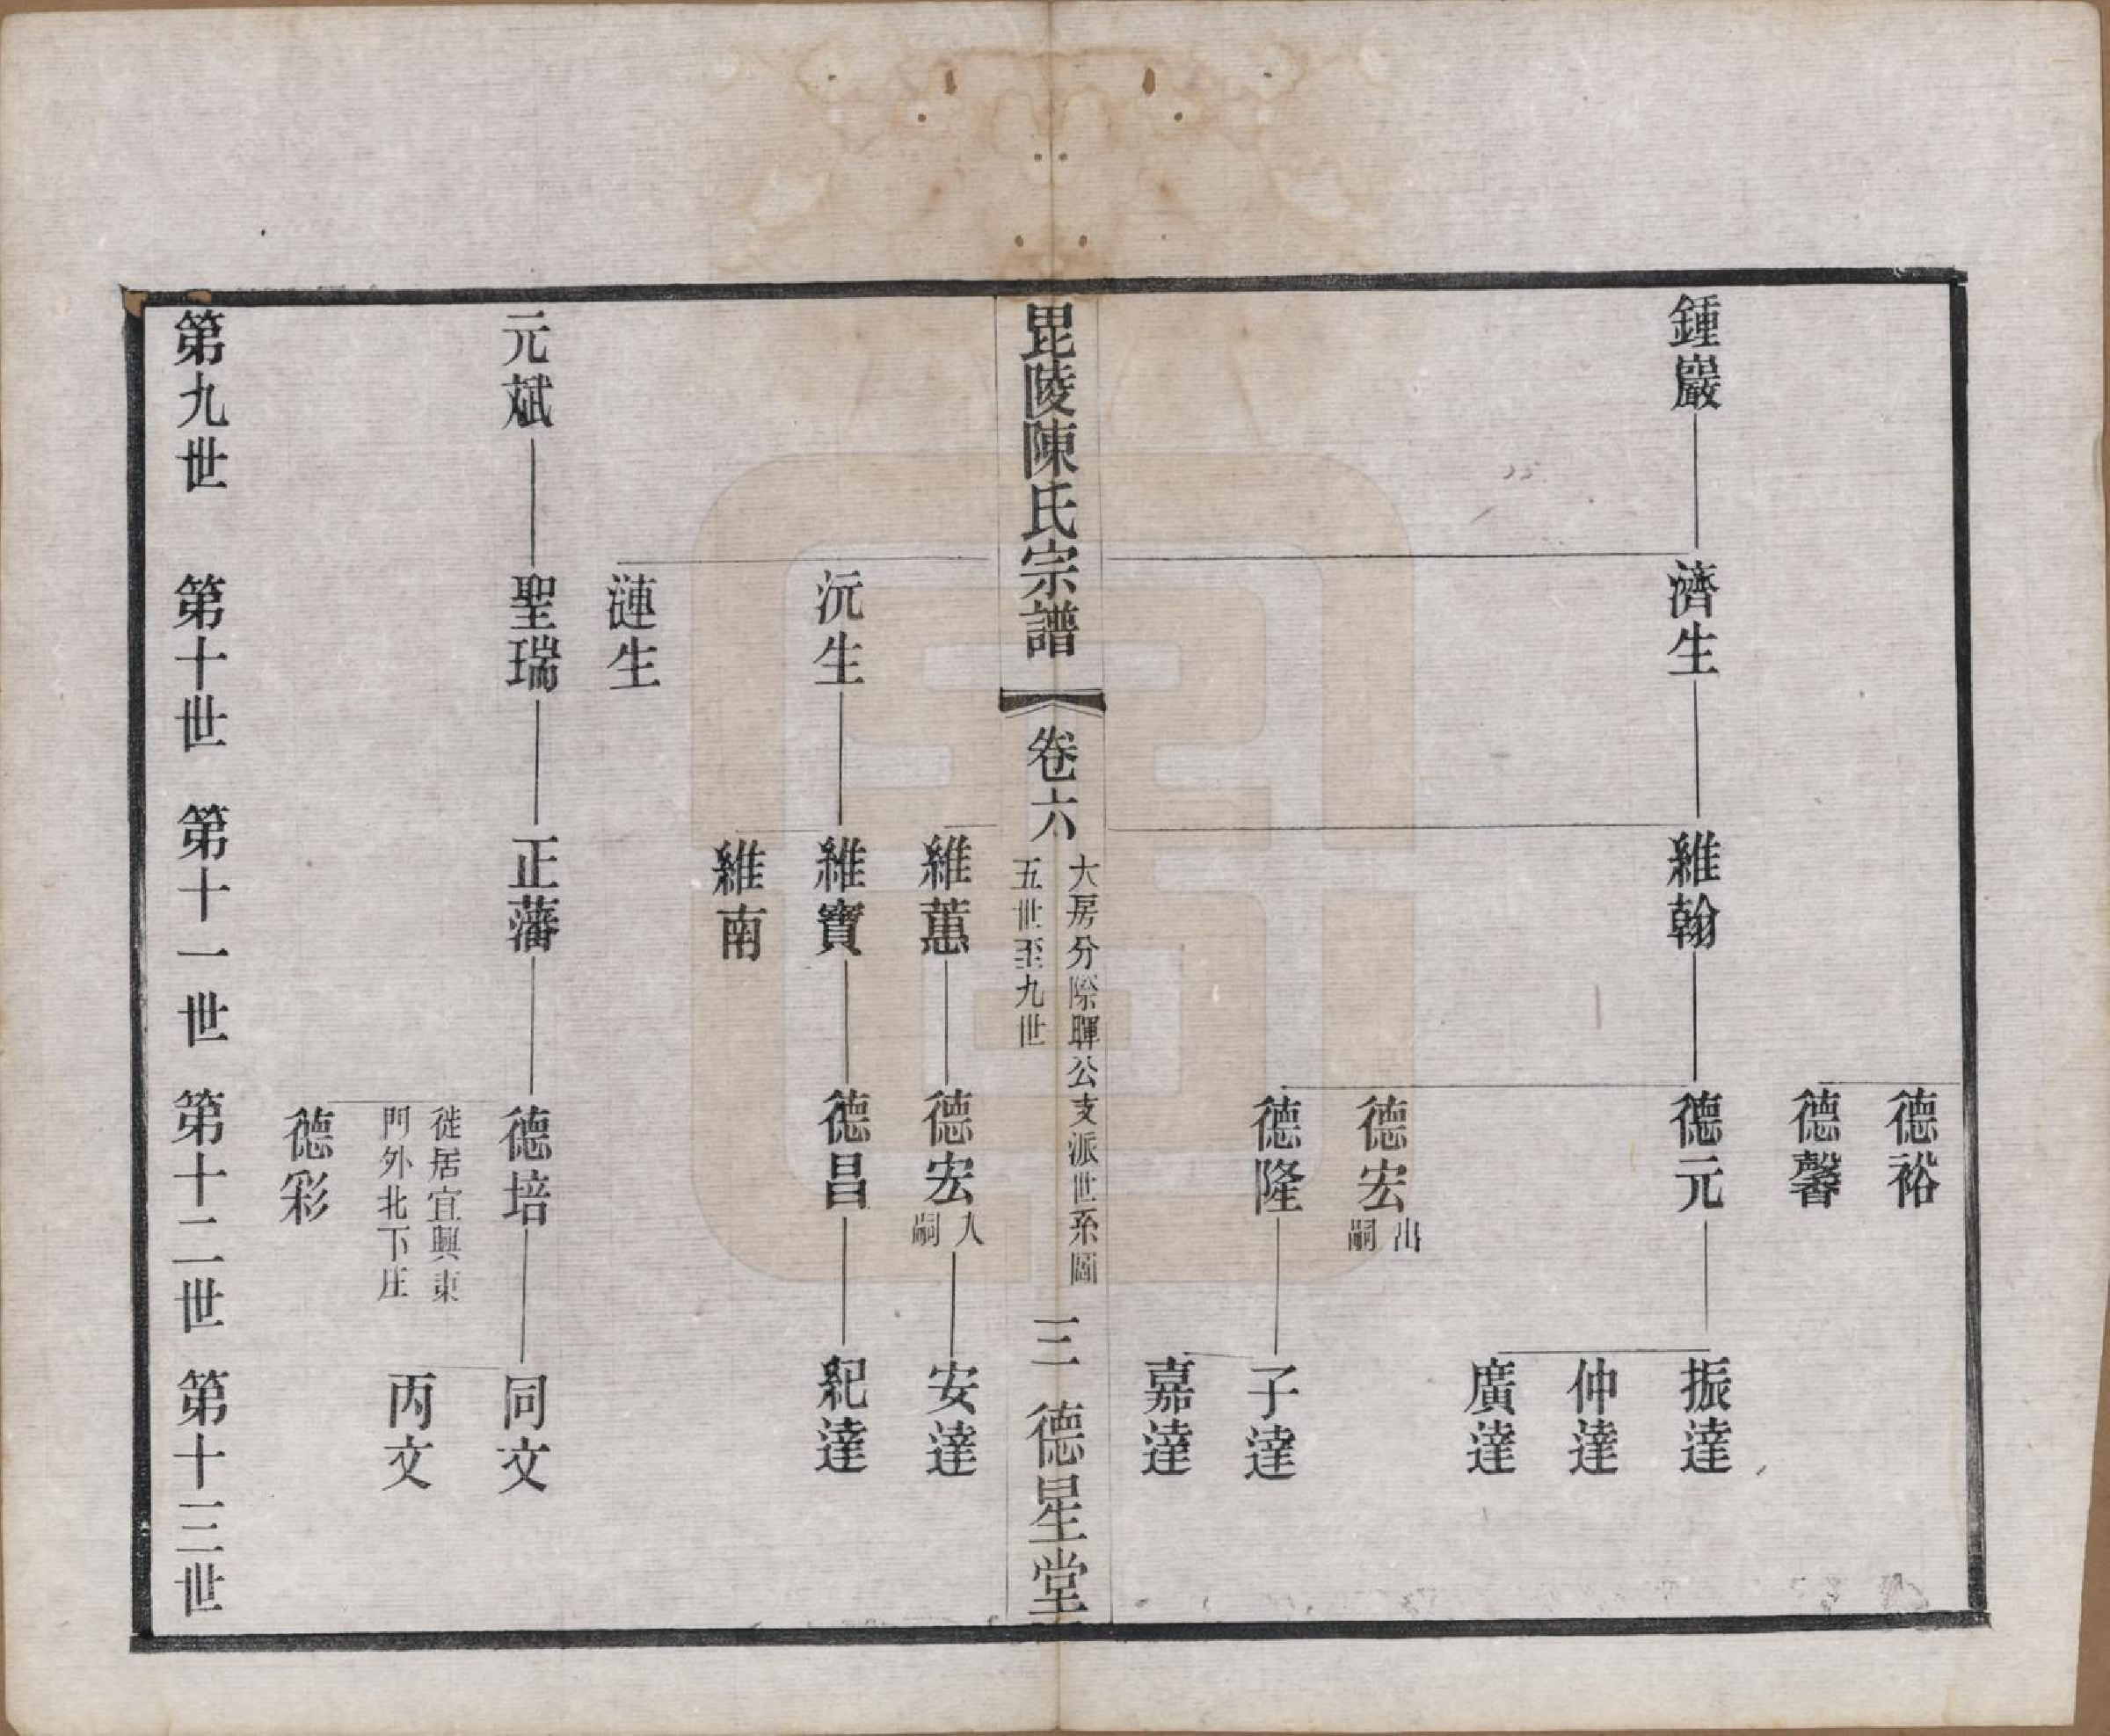 德裕
德馨
鍾巖
濟生
維翰
德元
振達
仲達
廣達
德宏
出嗣
德隆
子達
嘉達
毘陵陳氏宗譜
卷六
大房分際暉公支派世系圖
五世至九世
三
德星堂
維蕙
德宏
入嗣
安達
沅生
維寶
德昌
紀達
維南
漣生
元斌
聖瑞
正藩
德培
同文
徙居宜興東
門外北下庄
丙文
德彩
第九世
第十世
第十一世
第十二世
第十三世